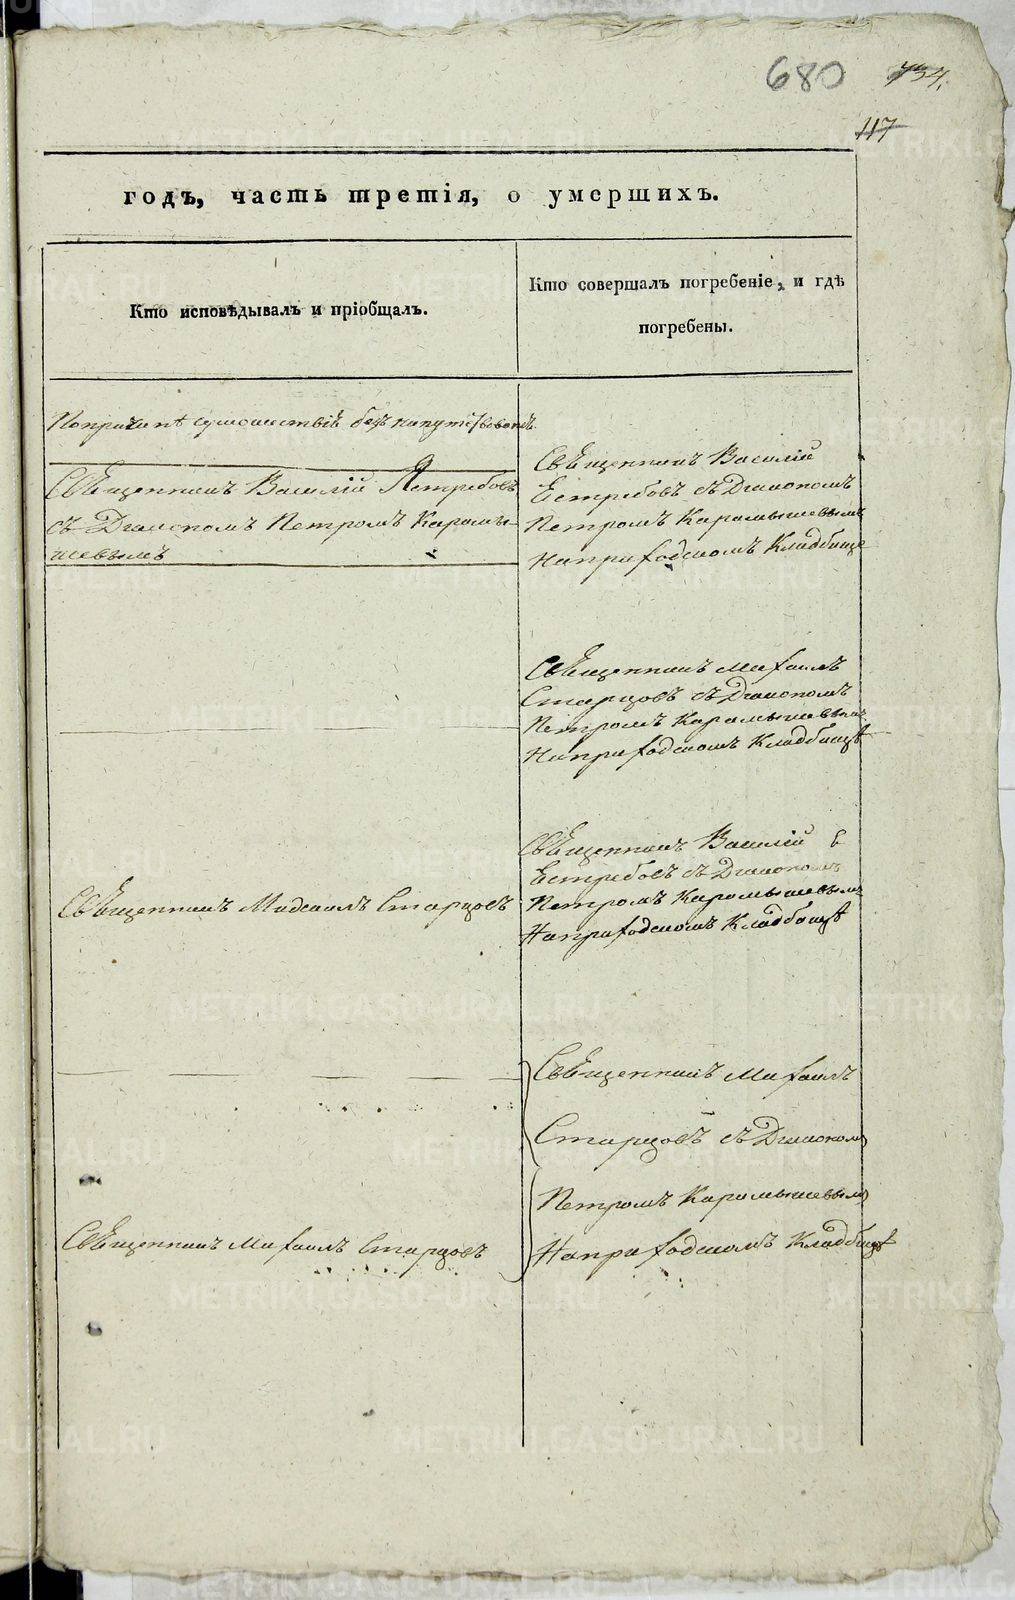 680 734.
117
годъ, часть третія, о умершихъ.
Кто исповѣдывалъ и пріобщалъ.
Кто совершалъ погребеніе, и гдѣ
погребены.
Попричинѣ сумошествія безъ напутствованія
Священникъ Василій Ястребовъ
съ Діакономъ Петромъ Карамы-
шевымъ
Священникъ Василій
Естребовъ съ Діакономъ
Петромъ Карамышевымъ
Наприходскомъ Кладбище
Священникъ Михаилъ
Старцовъ съ Діакономъ
Петромъ Карамышевымъ
Наприходскомъ Кладбищѣ
Священникъ Михаилъ Старцовъ
Священникъ Василій Е
Естребовъ съ Діакономъ
Петромъ Карамышевымъ
Наприходскомъ Кладбищѣ
Священникъ Михаилъ
Старцовъ съ Діакономъ
Петромъ Карамышевымъ
Наприходскомъ Кладбищѣ
Священникъ Михаилъ Старцовъ
METRIKI.GASO-URAL.RU